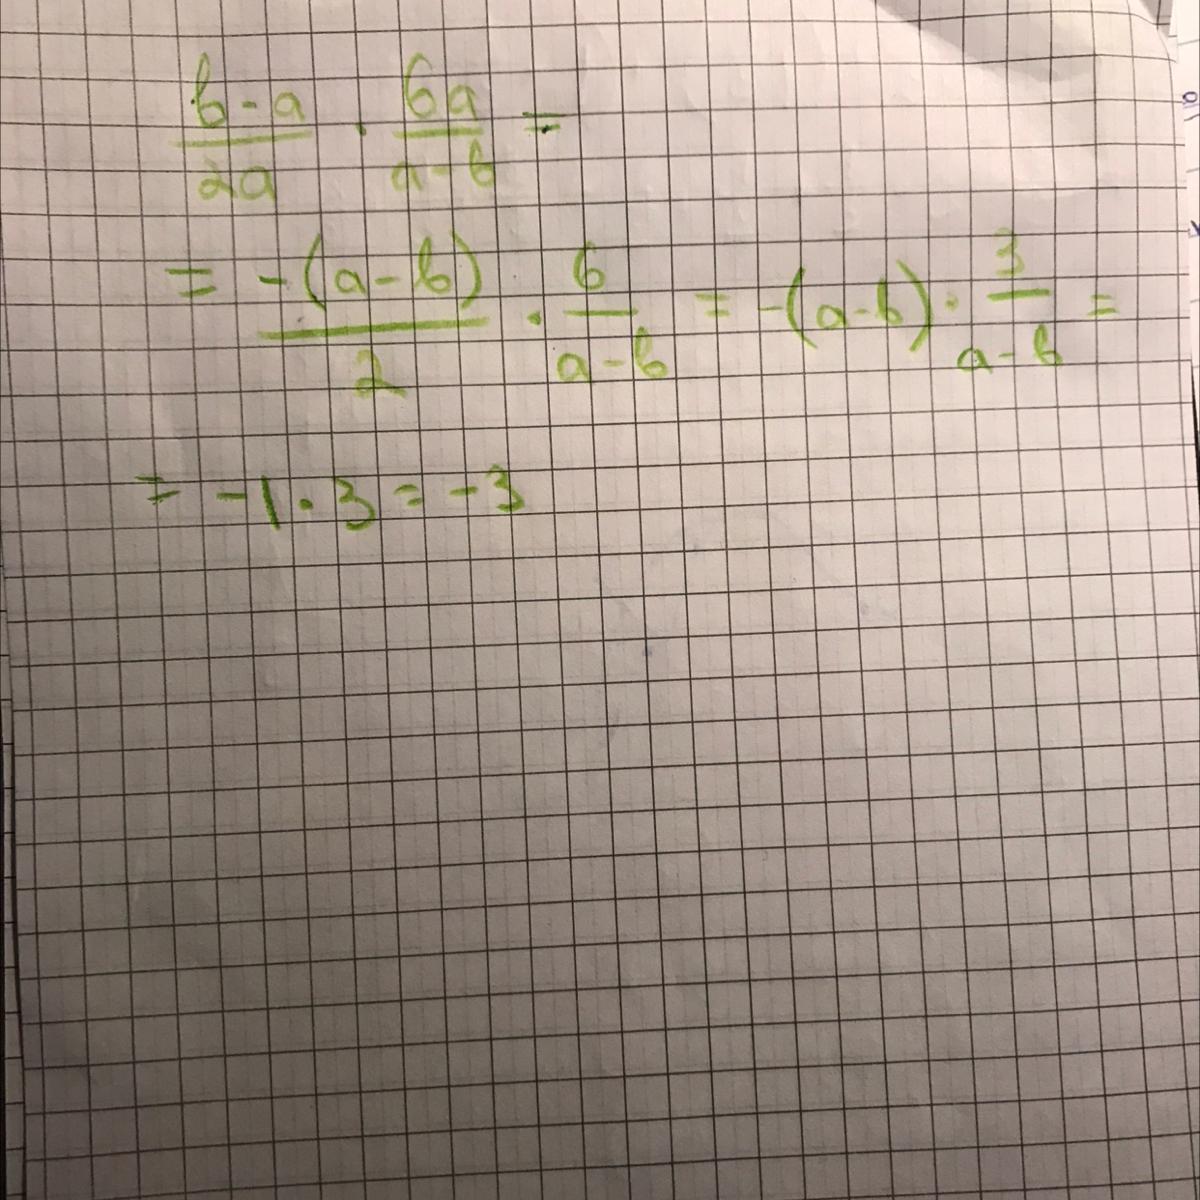 b-a/2a · 6a/a-b =
= -(a-b)/2 · 6/a-b = -(a-b) · 3/a-b =
= -1 · 3 = -3